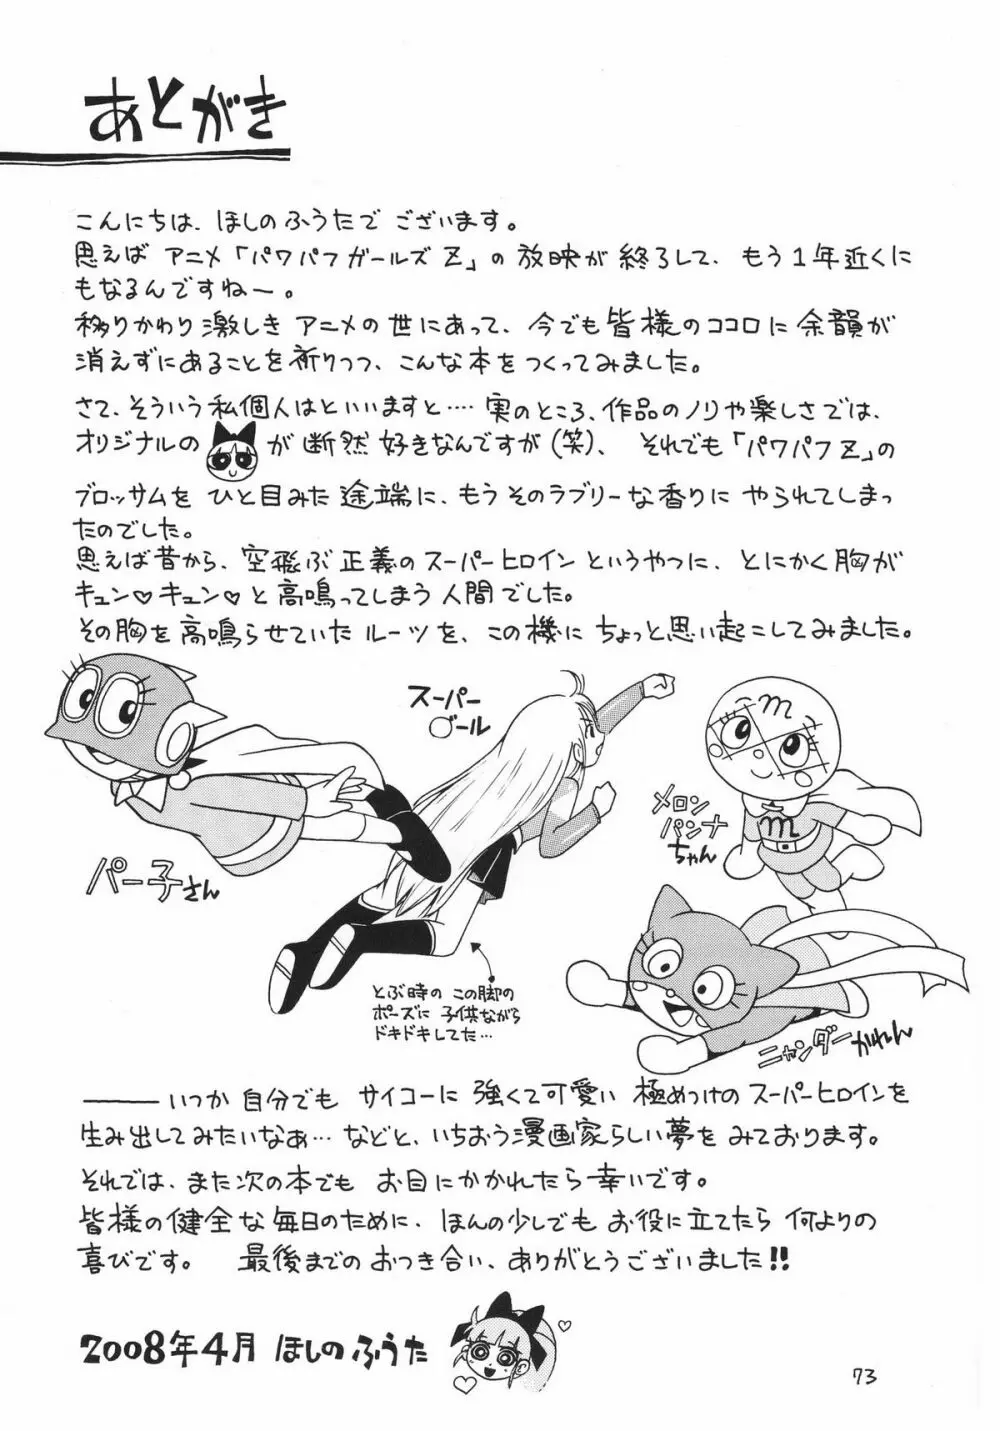 あとがき
こんにちは、ほしのふうたでございます。
思えばアニメ「パワパフガールズZ」の放映が終了して、もう1年近くに
もなるんですねー。
移りかわり激しきアニメの世にあって、今でも皆様のココロに余韻が
消えずにあることを祈りつつ、こんな本をつくってみました。
さて、そういう私個人はといいますと‥‥実のところ、作品のノリや楽しさでは、
オリジナルのが断然好きなんですが(笑)、それでも「パワパフZ」の
ブロッサムをひと目みた途端に、もうそのラブリーな香りにやられてしまっ
たのでした。
思えば昔から、空飛ぶ正義のスーパーヒロインというやつに、とにかく胸が
キュン♡キュン♡と高鳴ってしまう人間でした。
その胸を高鳴らせていたルーツを、この機にちょっと思い起こしてみました。
パー子さん
スーパー
○ール
とぶ時のこの脚の
ポーズに子供ながら
ドキドキしてた…
m
m
メロン
パンナ
ちゃん
ニャンダーかめん
――いつか自分でもサイコーに強くて可愛い極めつけのスーパーヒロインを
生み出してみたいなぁ…などと、いちおう漫画家らしい夢をみております。
それでは、また次の本でもお目にかかれたら幸いです。
皆様の健全な毎日のために、ほんの少しでもお役に立てたら何よりの
喜びです。最後までのおつき合い、ありがとうございました!!
2008年4月ほしのふうた
73